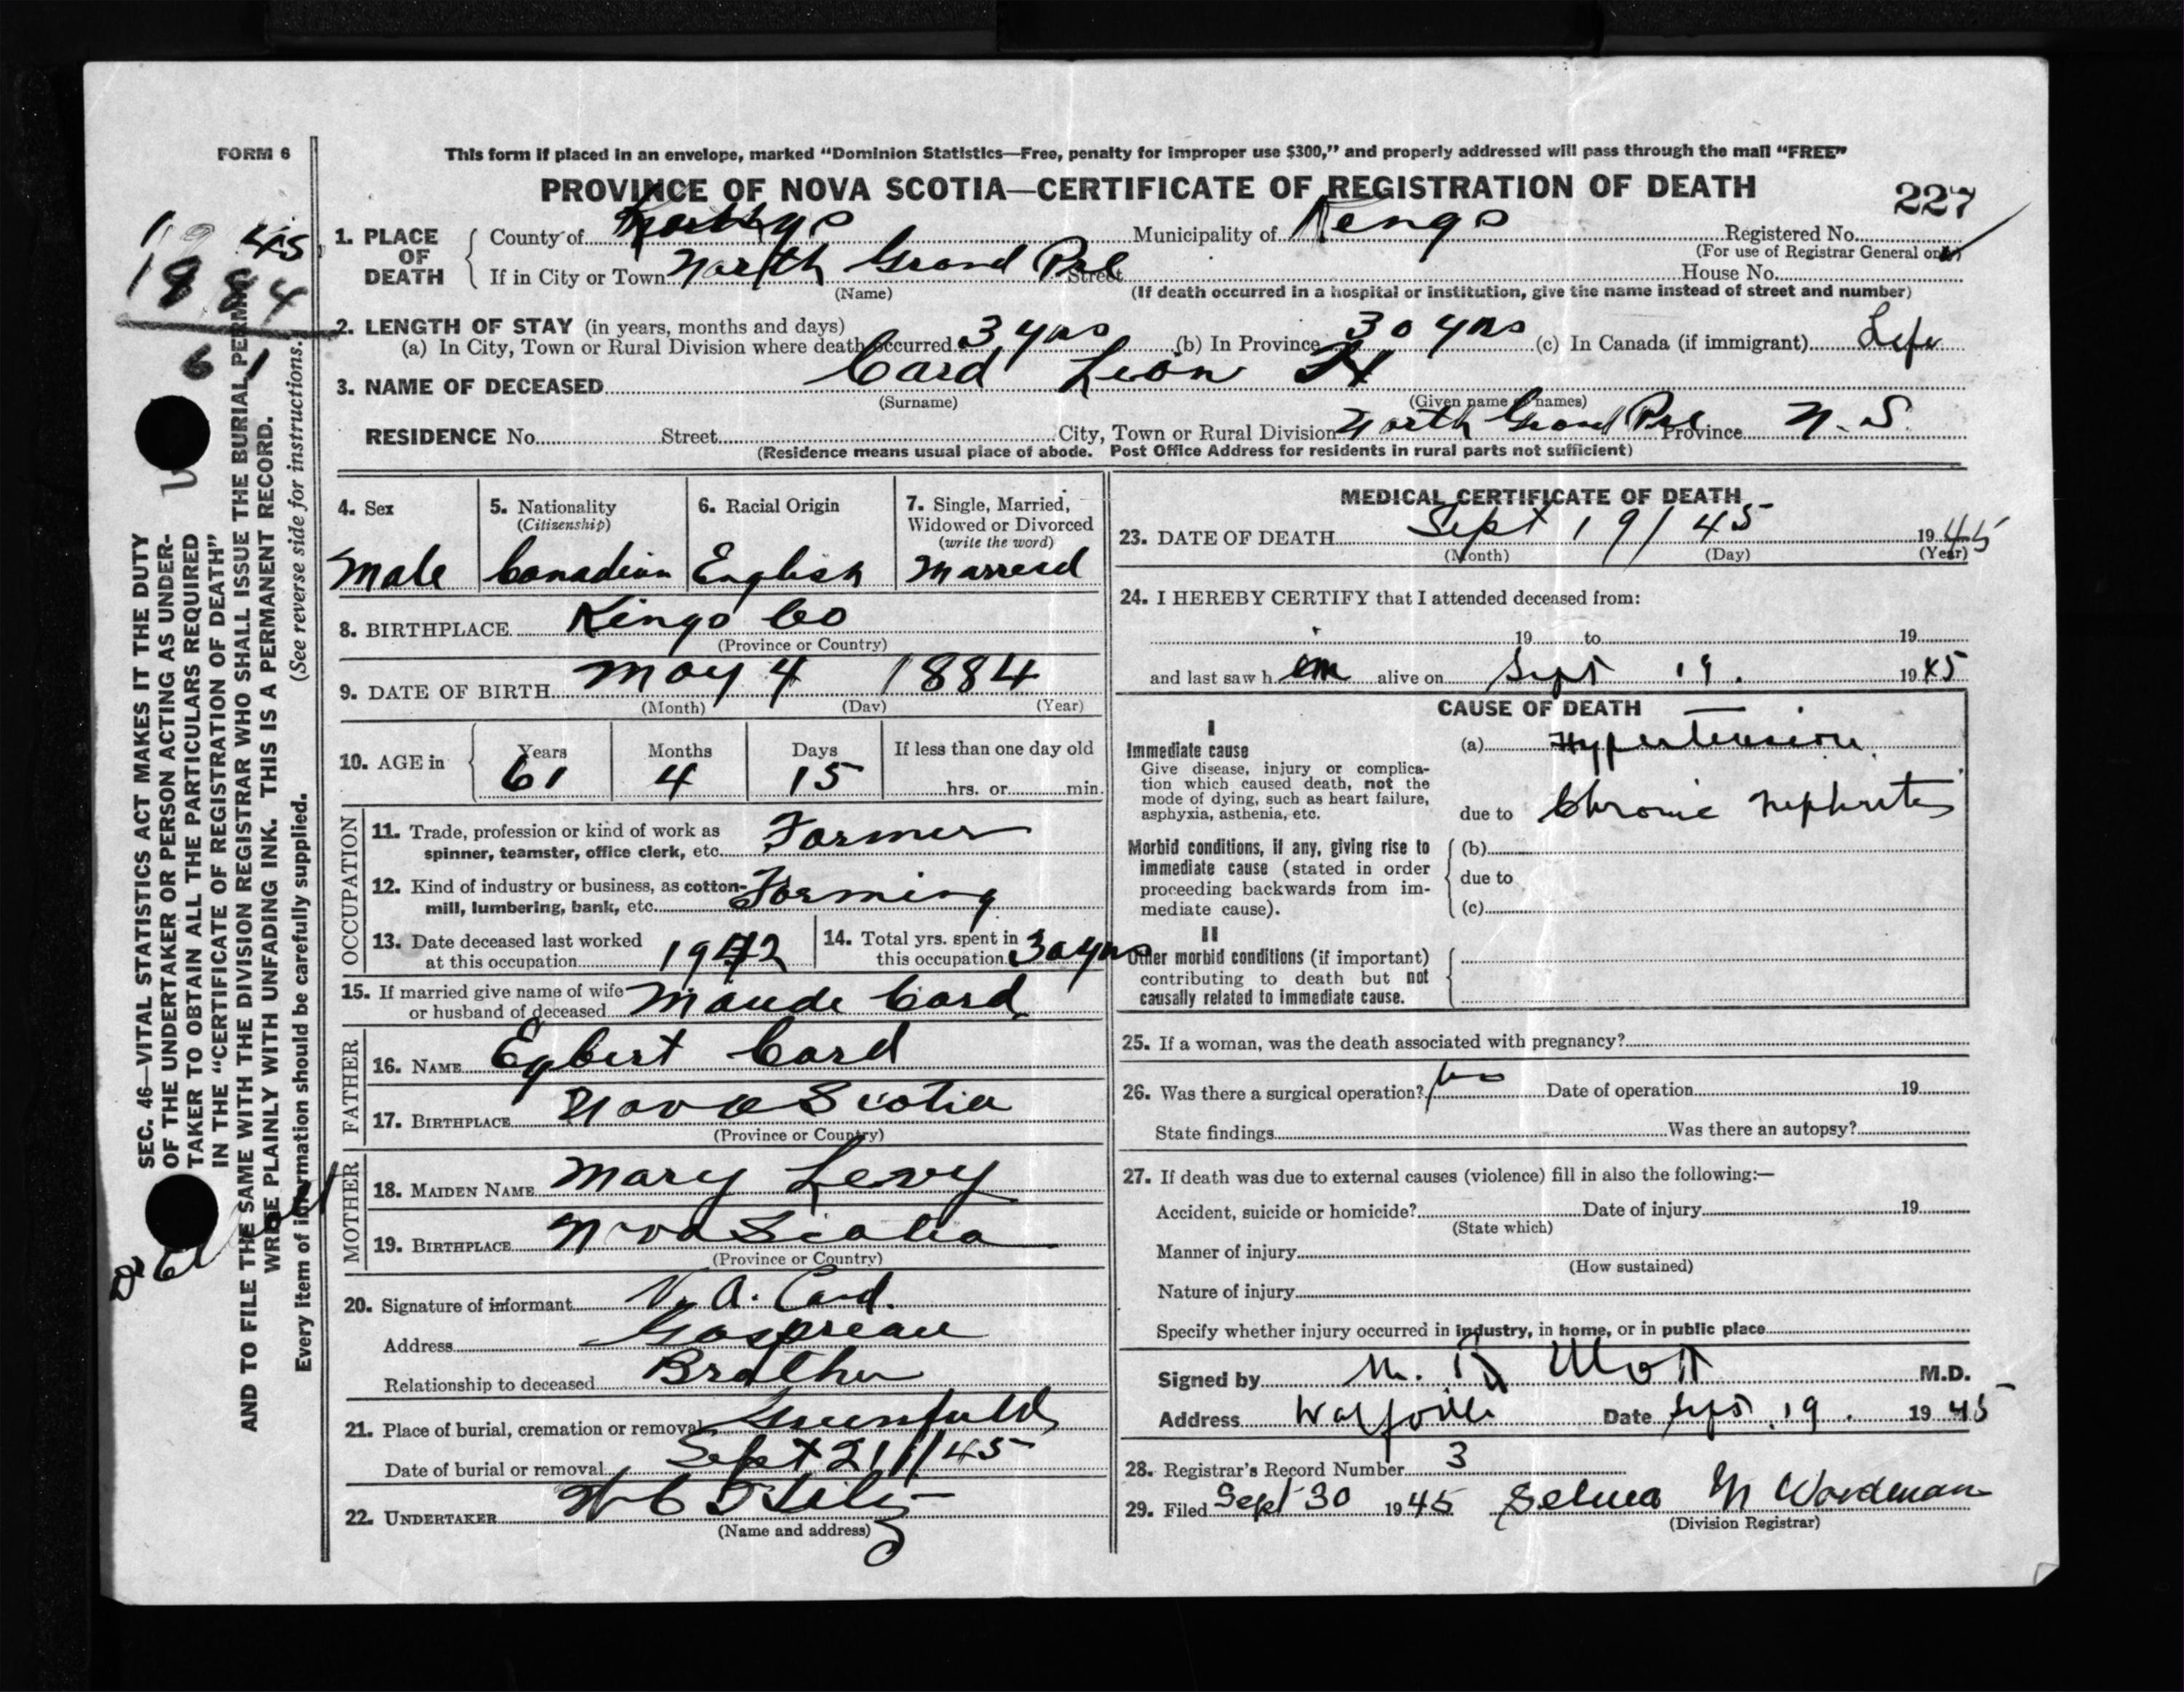 FORM 6
This form if placed in an envelope, marked “Dominion Statistics—Free, penalty for improper use $300,” and properly addressed will pass through the mail “FREE”
PROVINCE OF NOVA SCOTIA—CERTIFICATE OF REGISTRATION OF DEATH
227
1. PLACE OF DEATH
County of Kings Municipality of Kings Registered No.
(For use of Registrar General only)
If in City or Town North Grand Pre Street House No.
(Name) (If death occurred in a hospital or institution, give the name instead of street and number)
2. LENGTH OF STAY (in years, months and days)
(a) In City, Town or Rural Division where death occurred 3 yrs (b) In Province 30 yrs (c) In Canada (if immigrant) Life
3. NAME OF DECEASED Card Leon H
(Surname) (Given name or names)
RESIDENCE No. Street City, Town or Rural Division North Grand Pre Province N. S.
(Residence means usual place of abode. Post Office Address for residents in rural parts not sufficient)
4. Sex
Male
5. Nationality
(Citizenship)
Canadian
6. Racial Origin
English
7. Single, Married,
Widowed or Divorced
(write the word)
Married
8. BIRTHPLACE Kings Co
(Province or Country)
9. DATE OF BIRTH May 4 1884
(Month) (Day) (Year)
10. AGE in
Years Months Days If less than one day old
61 4 15 hrs. or min.
OCCUPATION
11. Trade, profession or kind of work as
spinner, teamster, office clerk, etc. Farmer
12. Kind of industry or business, as cotton-
mill, lumbering, bank, etc. Farming
13. Date deceased last worked
at this occupation 1942
14. Total yrs. spent in
this occupation 30 yrs
15. If married give name of wife
or husband of deceased Maude Card
FATHER
16. NAME Egbert Card
17. BIRTHPLACE Nova Scotia
(Province or Country)
MOTHER
18. MAIDEN NAME Mary Levy
19. BIRTHPLACE Nova Scotia
(Province or Country)
20. Signature of informant V. A. Card.
Address Gaspreau
Relationship to deceased Brother
21. Place of burial, cremation or removal Greenfield
Date of burial or removal Sept 21/45
22. UNDERTAKER
(Name and address)
MEDICAL CERTIFICATE OF DEATH
23. DATE OF DEATH Sept 19/45 1945
(Month) (Day) (Year)
24. I HEREBY CERTIFY that I attended deceased from:
19 to 19
and last saw h im alive on Sept 19. 1945
CAUSE OF DEATH
I
Immediate cause
Give disease, injury or complica-
tion which caused death, not the
mode of dying, such as heart failure,
asphyxia, asthenia, etc.
(a) Hypertension
due to Chronic Nephritis
Morbid conditions, if any, giving rise to
immediate cause (stated in order
proceeding backwards from im-
mediate cause).
(b)
due to
(c)
II
Other morbid conditions (if important)
contributing to death but not
causally related to immediate cause.
25. If a woman, was the death associated with pregnancy?
26. Was there a surgical operation? No Date of operation 19
State findings Was there an autopsy?
27. If death was due to external causes (violence) fill in also the following:—
Accident, suicide or homicide? Date of injury 19
(State which)
Manner of injury
(How sustained)
Nature of injury
Specify whether injury occurred in industry, in home, or in public place
Signed by M. R Mott M.D.
Address Wolfville Date Sept. 19. 1945
28. Registrar's Record Number 3
29. Filed Sept 30 1945 Selma M Wordman
(Division Registrar)
1945
1884
61
SEC. 46—VITAL STATISTICS ACT MAKES IT THE DUTY
OF THE UNDERTAKER OR PERSON ACTING AS UNDER-
TAKER TO OBTAIN ALL THE PARTICULARS REQUIRED
IN THE “CERTIFICATE OF REGISTRATION OF DEATH”
AND TO FILE THE SAME WITH THE DIVISION REGISTRAR WHO SHALL ISSUE THE BURIAL PERMIT
WRITE PLAINLY WITH UNFADING INK. THIS IS A PERMANENT RECORD.
Every item of information should be carefully supplied. (See reverse side for instructions.)